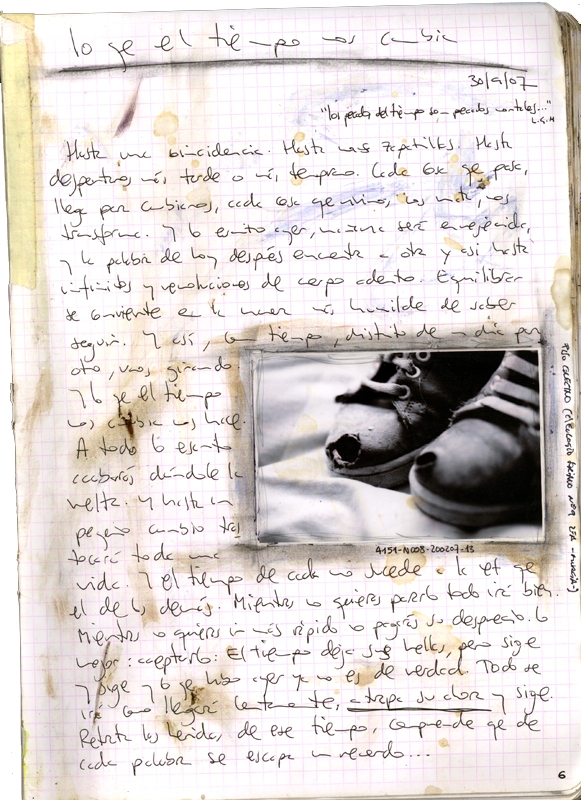 lo qe el tiempo nos cambia
30/9/07
"los pecados del tiempo son pecados mortales..."
L.G.M
Hasta una coincidencia. Hasta unas zapatillas. Hasta
despertarnos más tarde o más temprano. Cada cosa qe pasa,
llega para cambiarnos, cada cosa qe vivimos, nos mata, nos
transforma. Y lo escrito ayer, mañana será envejecido,
y la palabra de hoy después encuentra a otra y así hasta
infinitos y revoluciones de cuerpo adentro. Equilibrar
se convierte en la manera más humilde de saber
seguir. Y así, con tiempo, distinto de un día por
otro, vamos girando.
Y lo qe el tiempo
nos cambia nos hace.
A todo lo escrito
acabarás dándole la
vuelta. Y hasta un
pequeño cambio tras
tocará toda una
vida. Y el tiempo de cada uno sucede a la vez qe
el de los demás. Mientras no quieras pararlo todo irá bien.
Mientras no quieras ir más rápido no pagarás su desprecio. Lo
mejor: aceptarlo: El tiempo deja sus huellas, pero sige
y sige y lo qe hizo ayer ya no es de verdad. Todo se
irá como llegará lentamente, atrapa su ahora y sige.
Retrata las heridas, de ese tiempo, comprende qe de
cada palabra se escapa un recuerdo...
A151-N008-200207-13
6